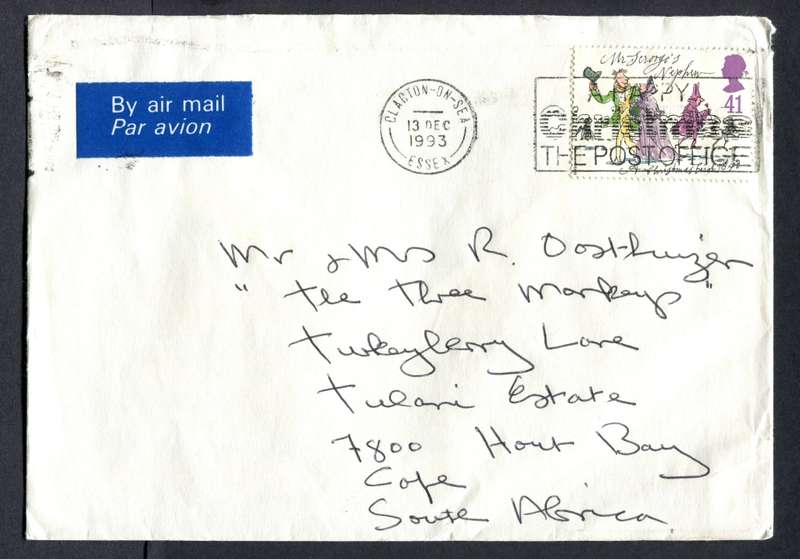 By air mail
Par avion
CLACTON-ON-SEA
13 DEC
1993
ESSEX
Mr Scrooge's
Nephew
41
HAPPY
Christmas
THE POST OFFICE
A Christmas Carol
Mr & Mrs R. Oosthuizen
"The Three Monkeys"
Turkeyberry Lane
Tulani Estate
7800 Hout Bay
Cape
South Africa